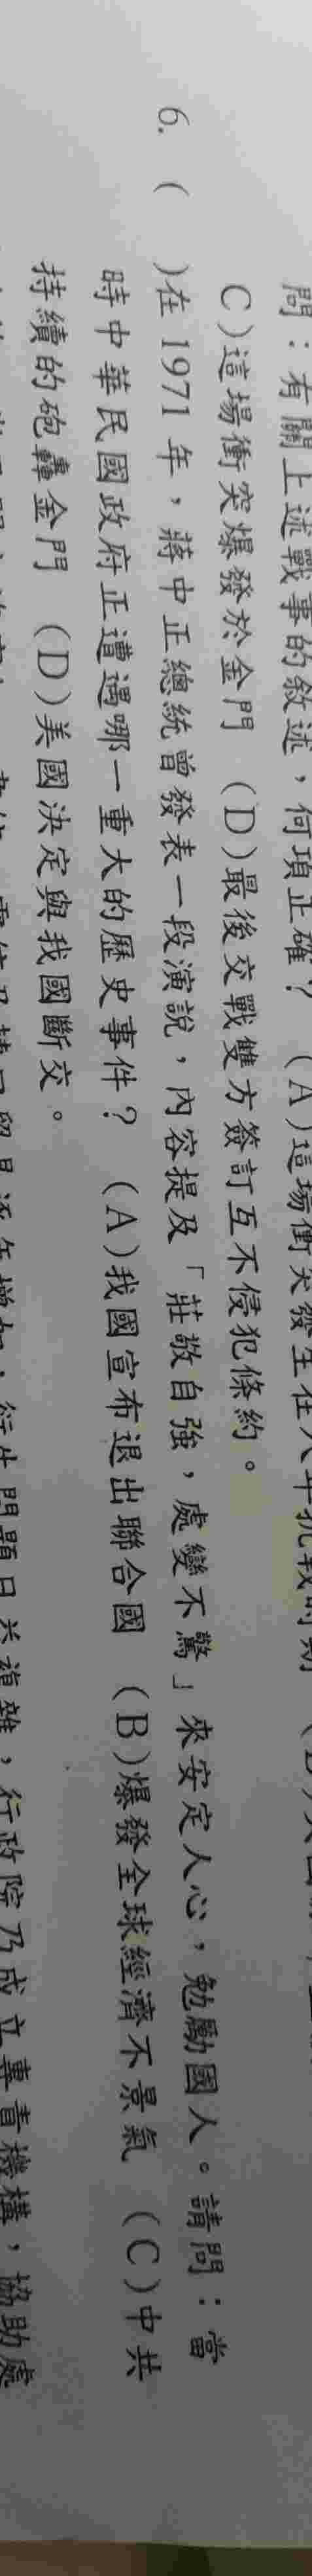 問：有關上述戰事的敘述，何項正確？ (A)這場衝突發生在八年抗戰時期
C)這場衝突爆發於金門 (D)最後交戰雙方簽訂互不侵犯條約。
6. ( )在 1971 年，蔣中正總統曾發表一段演說，內容提及「莊敬自強，處變不驚」來安定人心，勉勵國人。請問：當
時中華民國政府正遭遇哪一重大的歷史事件？ (A)我國宣布退出聯合國 (B)爆發全球經濟不景氣 (C)中共
持續的砲轟金門 (D)美國決定與我國斷交。
留日逐年增加，衍生問題日益複雜，行政院乃成立專責機構，協助處